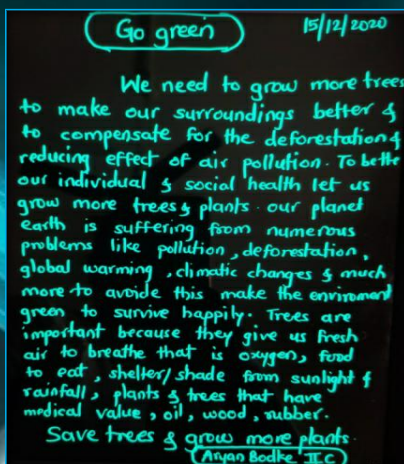 Go green
15/12/2020
We need to grow more trees
to make our surroundings better &
to compensate for the deforestation &
reducing effect of air pollution. To bette
our individual & social health let us
grow more trees & plants. our planet
earth is suffering from numerous
problems like pollution, deforestation,
global warming, climatic changes & much
more to avoide this make the enviroment
green to survive happily. Trees are
important because they give us fresh
air to breathe that is oxygen, food
to eat, shelter/shade from sunlight &
rainfall, plants & trees that have
medical value, oil, wood, rubber.
Save trees & grow more plants.
Aryan Bodke II C